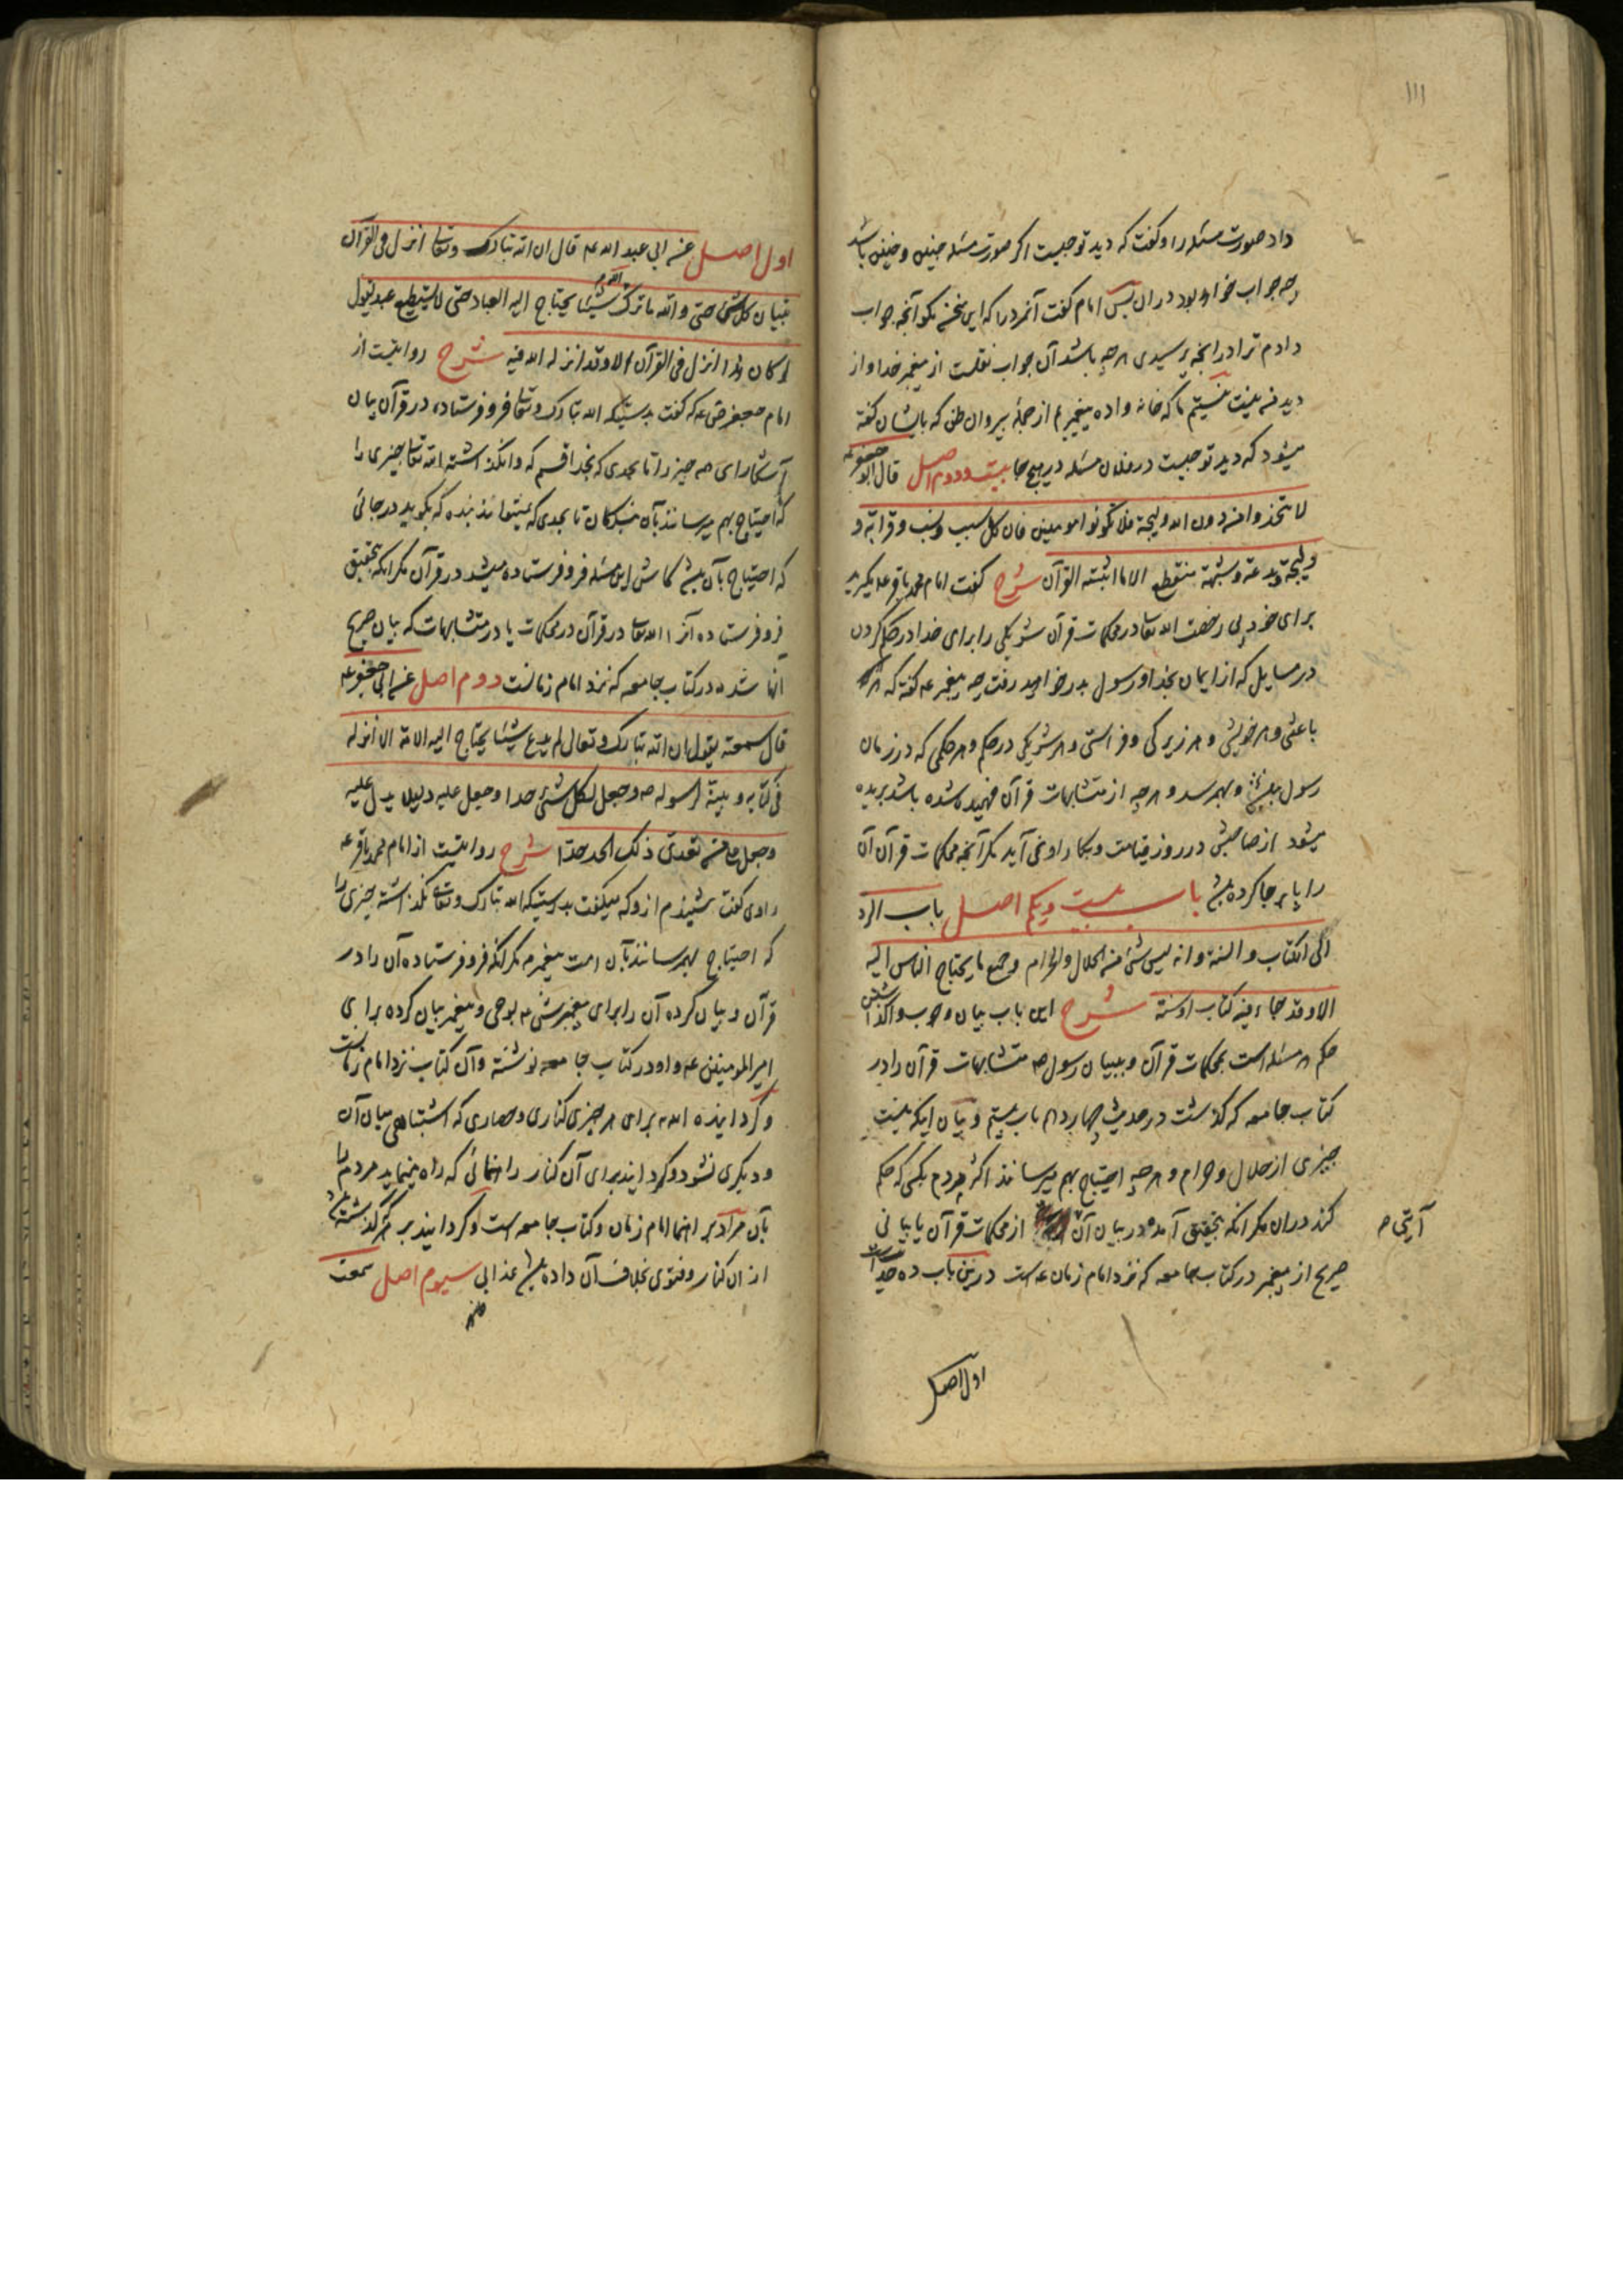 ۱۱۱
داد صورت مسئله را و گفت که دید تو چیست اگر صورت مسئله چنین و چنین باشد
چه جواب خواهد بود در ان پس امام گفت آنمرد را که این سخن مگو آنچه جواب
دادم ترا در انچه پرسیدی هر چه باشد آن جواب نقلست از پیغمبر خدا و از
دید من نیست نیستیم ما که خانه واده پیغمبریم از جملهٔ پیروان ظن که بایشان گفته
میشود که دید تو چیست در فلان مسئله در هیچ جا بیست و دوم اصل قال ابو جعفر عه
لا تتخذوا من دون الله ولیجة فلا تکونوا مومنین فان کل سبب و نسب و قرابة و
ولیجة و بدعة و شبهة منقطع الا ما اثبته القرآن شرح گفت امام محمد باقر عه مگیرید
برای خود بی رخصت الله تعا در محکمات قرآن شریکی را برای خدا در حکم کردن
در مسایل که از ایمان بخدا و رسول بدر خواهید رفت چه پیغمبر عه گفته که هر
باعثی و هر خویشی و هر زیرکی و فراستی و هر شریکی در حکم و هر حکمی که در زمان
رسول نباشد و بهمرسد و هر چه از متشابهات قرآن فهمیده شده باشد بریده
میشود از صاحبش در روز قیامت و بکار او نمی آید مگر آنچه محکمات قرآن آن
را پا بر جا کرده باشد باب بیست و یکم اصل باب الرد
الی الکتاب و السنة و انه لیس شئ من الحلال و الحرام و جمیع ما یحتاج الناس الیه
الا و قد جاء فیه کتاب او سنة شرح این باب بیان وجوب واگذاشتن
حکم هر مسئله است بمحکمات قرآن و ببیان رسول صه متشابهات قرآن را در
کتاب جامعه که گذشت در حدیث چهاردهم باب بیستم و بیان اینکه نیست
چیزی از حلال و حرام و هر چه احتیاج بهم میرسانند اکثر مردم بکسی که حکم
کند در ان مگر انکه بتحقیق آمده در بیان آن از محکمات قرآن یا بیانی
آیتی صه
صریح از پیغمبر در کتاب جامعه که نزد امام زمان عه است درین باب ده حدیث است
اول اصل
اول اصل عن ابی عبد الله عه قال ان الله تبارک و تعا انزل فی القرآن
تبیان کل شئ حتی و الله ما ترک الله شیئا یحتاج الیه العباد حتی لا یستطیع عبد یقول
لو کان هذا انزل فی القرآن الا و قد انزله الله فیه شرح روایتست از
امام جعفر صه عه که گفت بدرستیکه الله تبارک و تعا فرو فرستاده در قرآن بیان
آشکارای هر چیز را تا بحدی که بخدا قسم که وا نگذاشته الله تعا چیزی را
که احتیاج بهم میرسانند بآن بندگان تا بحدی که نمیتواند بنده که بگوید در جائی
که احتیاج بآن باشد کاش این مسئله فرو فرستاده میشد در قرآن مگر انکه بتحقیق
فرو فرستاده آنرا الله تعا در قرآن در محکمات یا در متشابهات که بیان صریح
انها شده در کتاب جامعه که نزد امام زمانست دوم اصل عن ابی جعفر عه
قال سمعته یقول ان الله تبارک و تعالی لم یدع شیئا یحتاج الیه الامة الا انزله
فی کتابه و بینه لرسوله صه و جعل لکل شئ حدا و جعل علیه دلیلا یدل علیه
و جعل علی من تعدی ذلک الحد حدا شرح روایتست از امام محمد باقر عه
راوی گفت شنیدم ازو که میگفت بدرستیکه الله تبارک و تعا نگذاشته چیزی را
که احتیاج بهمرسانند بآن امت پیغمبر مگر انکه فرو فرستاده آن را در
قرآن و بیان کرده آن را برای پیغمبرش صه بوحی و پیغمبر بیان کرده برای
امیر المومنین عه و او در کتاب جامعه نوشته و آن کتاب نزد امام زمانست
و گردانیده الله برای هر چیزی کناری و حصاری که اشتباهی میان آن
و دیگری نشود و گردانید برای آن کنار راهنمائی که راه مینماید مردم را
بآن مراد بر اهنما امام زمان و کتاب جامعه است و گردانید بر هر که گذشته باشد
از ان کنار و فتوی بخلاف آن داده باشد عذابی سیوم اصل سمعت